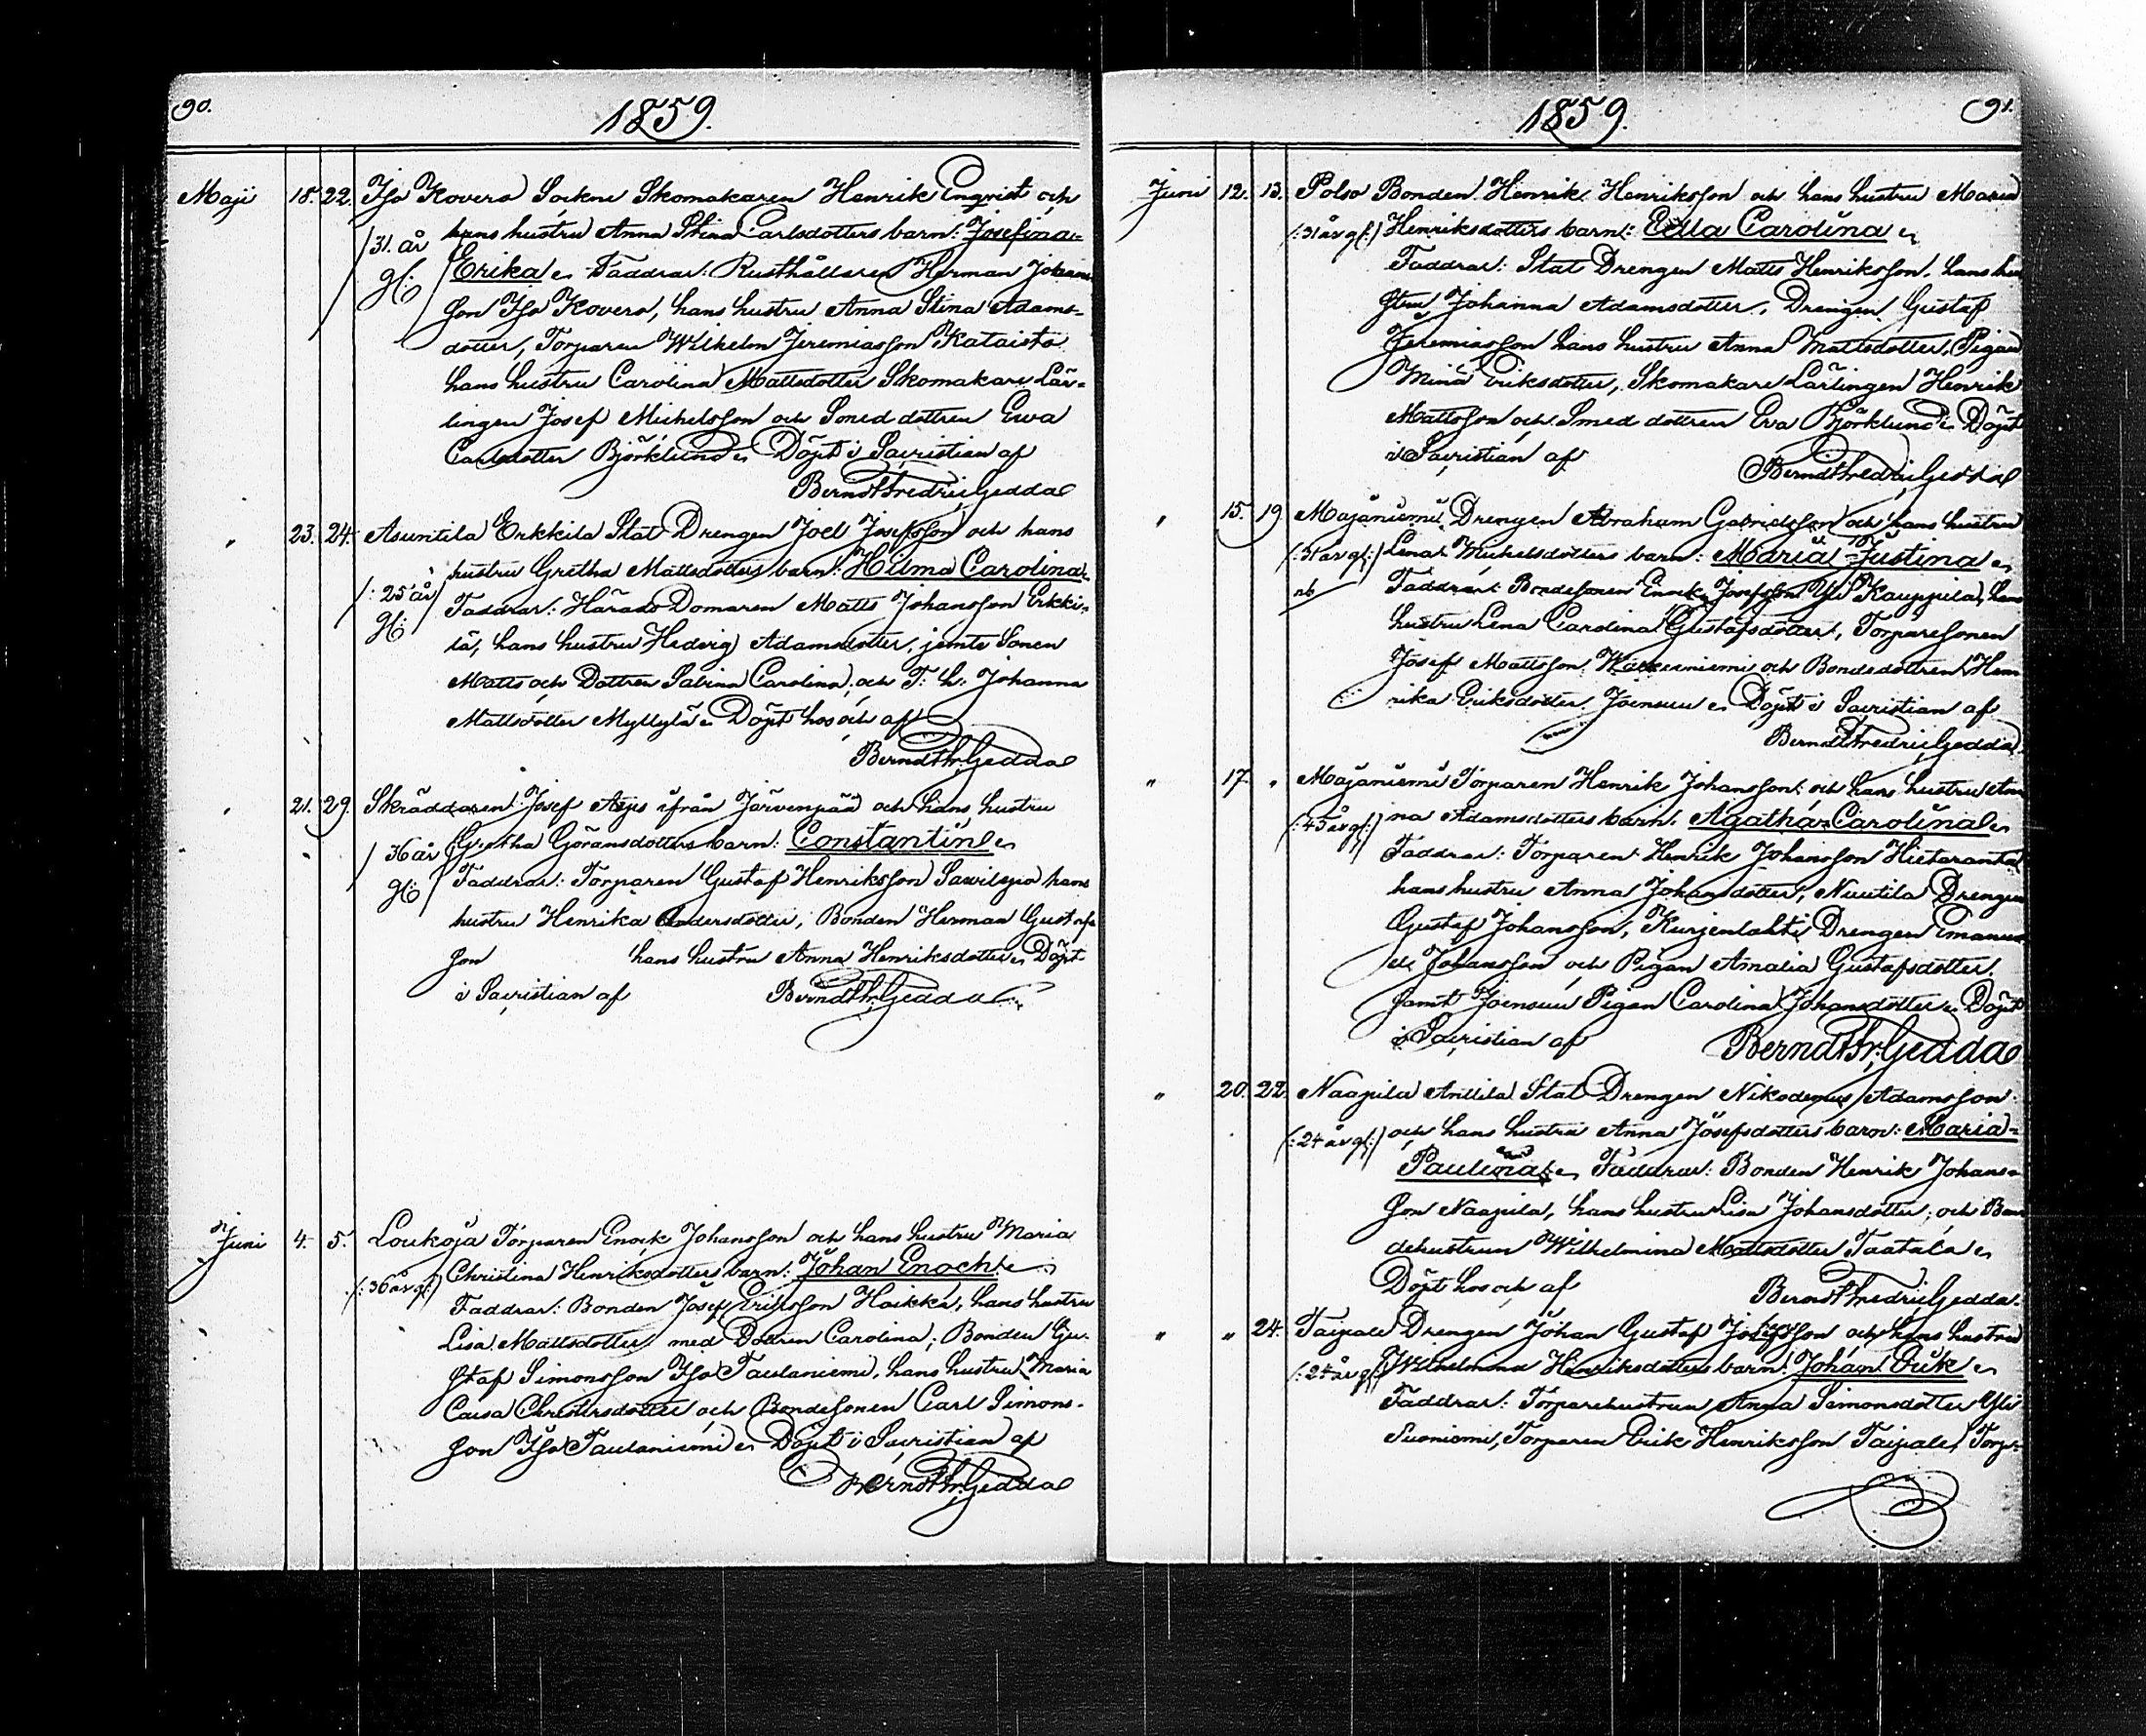 90.
1859.
Maji 18. 22. Iso Kovero Sockne Skomakaren Henrik Enqvist och
hans hustru Anna Stina Carlsdotters barn: Josefina=
/31. år
gl:/
Erika Faddrar: Rusthållaren Herman Johans
son Iso Kovero, hans hustru Anna Stina Adams=
dotter, Torparen Wilhelm Jeremiasson Kataisto
hans hustru Carolina Mattsdotter Skomakare Lär=
lingen Josef Michelsson och Smed dottren Ewa
Carlsdotter Björklund Döpt i Sacristian af
Berndt Fredric Gedda
" 23. 24. Asuntila Erkkila Stat Drengen Joel Josefsson och hans
hustru Gretha Mattsdotters barn: Hilma Carolina
/: 25 år
gl:/
Faddrar: Härads Domaren Matts Johansson Erkki=
lä, hans hustru Hedvig Adamsdotter, jemte Sonen
Matts och Dottren Sabina Carolina, och T: h: Johanna
Mattsdotter Myllylä Döpt hos och af
Berndt Fr: Gedda
" 21. 29. Skräddaren Josef ifrån Järvenpää och hans hustru
/ 36 år
gl:/
Gretha Göransdotters barn: Constantin
Faddrar: Torparen Gustaf Henriksson hans
hustru Henrika Andersdotter, Bonden Herman Gustafs
son hans hustru Anna Henriksdotter Döpt
i Sacristian af Berndt Fr: Gedda
Juni 4. 5. Loukoja Torparen Enock Johansson och hans hustru Maria
Christina Henriksdotters barn: Johan Enoch
/: 36 år gl:/
Faddrar: Bonden Josef Eriksson Haikka, hans hustru
Lisa Mattsdotter med Dottren Carolina; Bonden Gu=
staf Simonsson Iso Taulaniemi, hans hustru Maria
Caisa Christersdotter och Bondesonen Carl Simons=
son Iso Taulaniemi Döpt i Sacristian af
Berndt Fr: Gedda
1859.
91.
Juni 12. 13. Polso Bonden Henrik Henriksson och hans hustru Maria
/: 31 år gl:/ Henriksdotters barn: Edla Carolina
Faddrar: Stat Drengen Matts Henriksson, hans hu
stru Johanna Adamsdotter, Drengen Gustaf
Jeremiasson hans hustru Anna Mattsdotter, Pigan
Mina Eriksdotter, Skomakare Lärlingen Henrik
Mattsson och Smed dottren Eva Björklund Döpt
i Sacristian af Berndt Fredric Gedda
" 15. 19. Majaniemi Drengen Abraham Gabrielsson och hans hustru
/: 31 år gl:/ Lena Michelsdotters barn: Maria Justina
nb Faddrar: Bondesonen Enock Josefsson Yli Kauppila, hans
hustru Lena Carolina Gustafsdotter, Torparesonen
Josef Mattsson och Bondedottren Hen
rika Eriksdotter Joensuu Döpt i Sacristian af
Berndt Fredric Gedda
" 17. " Majaniemi Torparen Henrik Johansson och hans hustru An
/: 43 år gl:/ na Adamsdotters barn: Agatha Carolina
Faddrar: Torparen Henrik Johansson Hietaranta
hans hustru Anna Johansdotter, Nuutila Drengen
Gustaf Johansson, Kurjenlahti Drengen Emanu
el Johansson och Pigan Amalia Gustafsdotter,
samt Joensuu Pigan Carolina Johansdotter Döpt
i Sacristian af Berndt Fr: Gedda
" 20. 22. Naapila Anttila Stat Drengen Nikodemus Adamsson
/: 24 år gl:/ och hans hustru Anna Josefsdotters barn: Maria=
Paulina Faddrar: Bonden Henrik Johans=
son Naapila, hans hustru Lisa Johansdotter, och Bon
dehustrun Wilhelmina Mattsdotter Taatala
Döpt hos och af Berndt Fredric Gedda
" " 24. Taipale Drengen Johan Gustaf Josefsson och hans hustru
/: 24 år gl:/ Wilhelmina Henriksdotters barn: Johan Erik
Faddrar: Torparehustrun Anna Simonsdotter Yli
Suoniemi, Torparen Erik Henriksson Taipale, Torp=